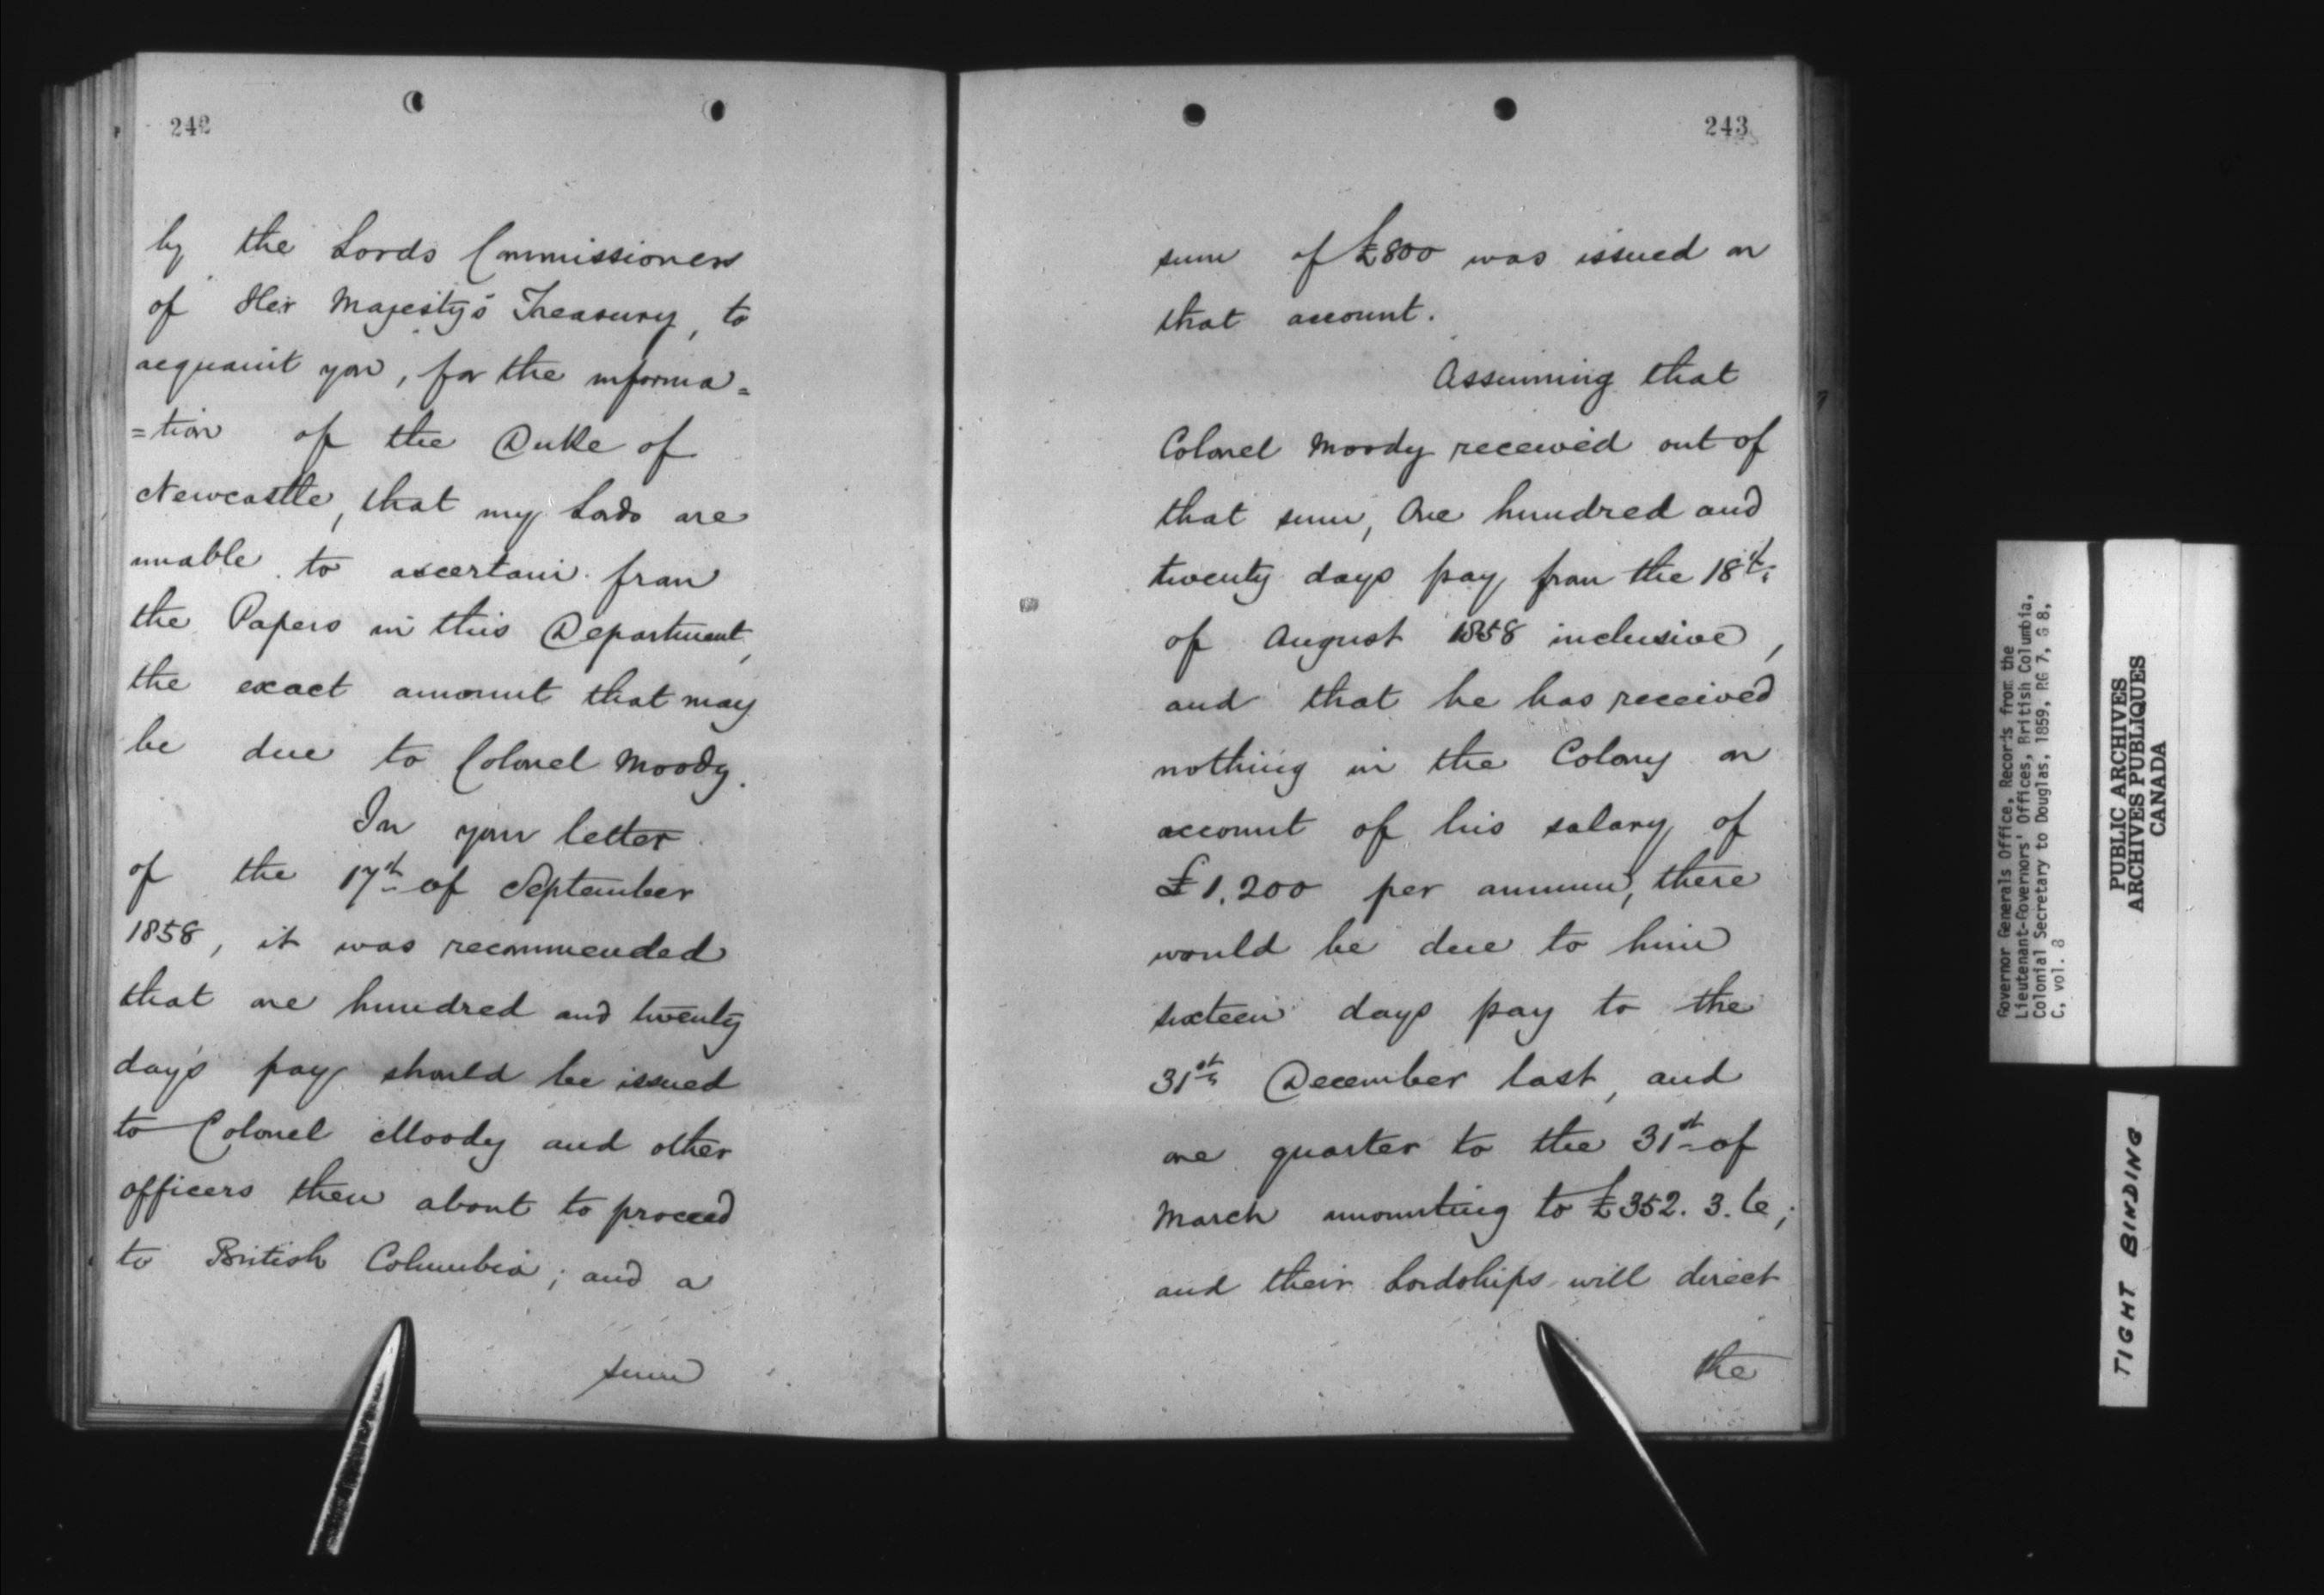 242
by the Lords Commissioners
of Her Majesty's Treasury, to
acquaint you, for the informa=
=tion of the Duke of
Newcastle, that my Lords are
unable to ascertain from
the Papers in this Department,
the exact amount that may
be due to Colonel Moody.
In your letter
of the 17th of September
1858, it was recommended
that one hundred and twenty
day's pay should be issued
to Colonel Moody and other
officers then about to proceed
to British Columbia; and a
sum
243
sum of £800 was issued on
that account.
Assuming that
Colonel Moody received out of
that sum, One hundred and
twenty days pay from the 18th
of August 1858 inclusive,
and that he has received
nothing in the Colony on
account of his salary of
£1,200 per annum, there
would be due to him
sixteen days pay to the
31st December last, and
one quarter to the 31st of
March amounting to £352. 3. 6;
and their Lordships will direct
the
Governor Generals Office, Records from the
Lieutenant-Governors' Offices, British Columbia,
Colonial Secretary to Douglas, 1859, RG 7, G 8,
C, vol. 8
PUBLIC ARCHIVES
ARCHIVES PUBLIQUES
CANADA
TIGHT BINDING